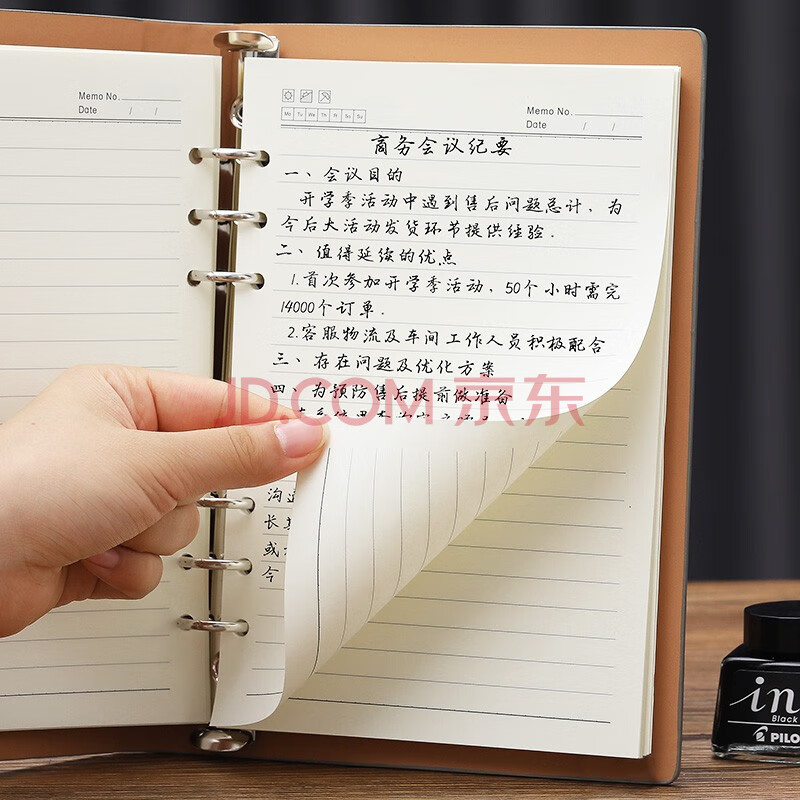 Memo No.
Date / /
Memo No.
Date / /
Mo Tu We Th Fr Sa Su
商务会议纪要
一、会议目的
开学季活动中遇到售后问题总计，为
今后大活动发货环节提供经验.
二、值得延续的优点
1.首次参加开学季活动，50个小时需完
14000个订单.
2.客服物流及车间工作人员积极配合
三、存在问题及优化方案
四、为预防售后提前做准备
JD.COM 京东
沟
长
或
今
in
Black
PILO